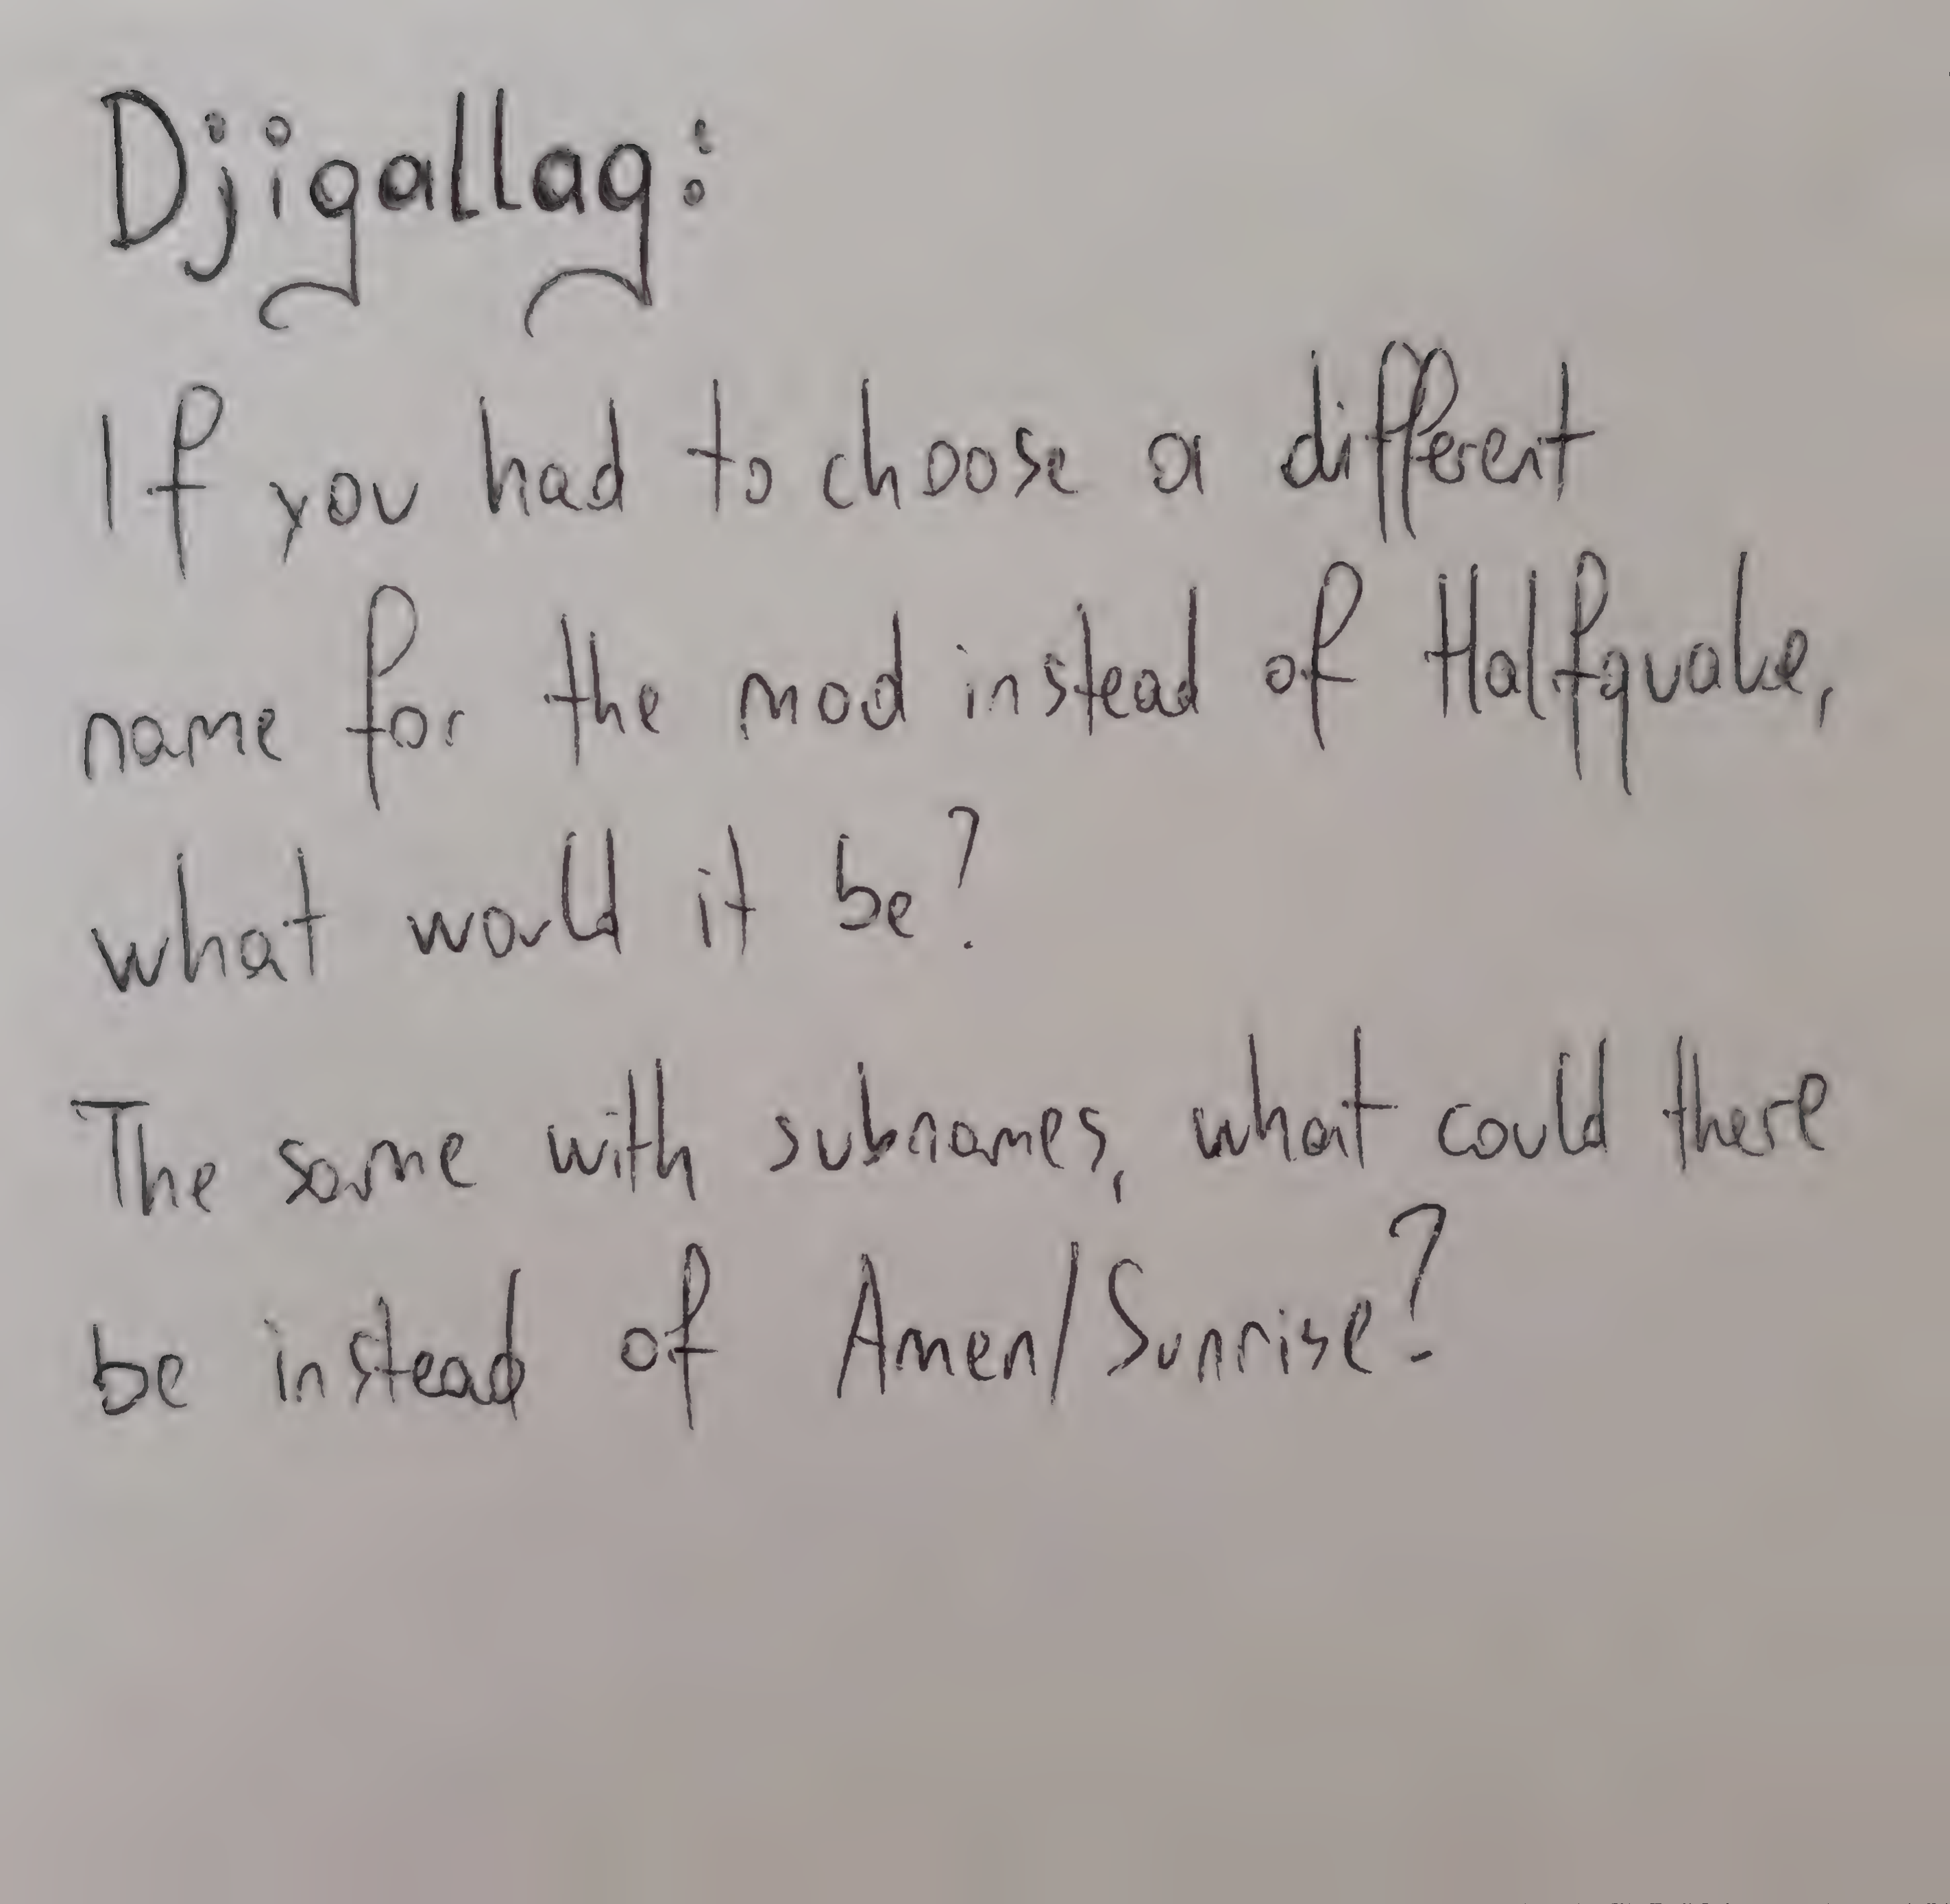 Djigallag:
If you had to choose a different
name for the mod instead of Halfquake,
what would it be?
The same with subnames, what could there
be instead of Amen/Sunrise?